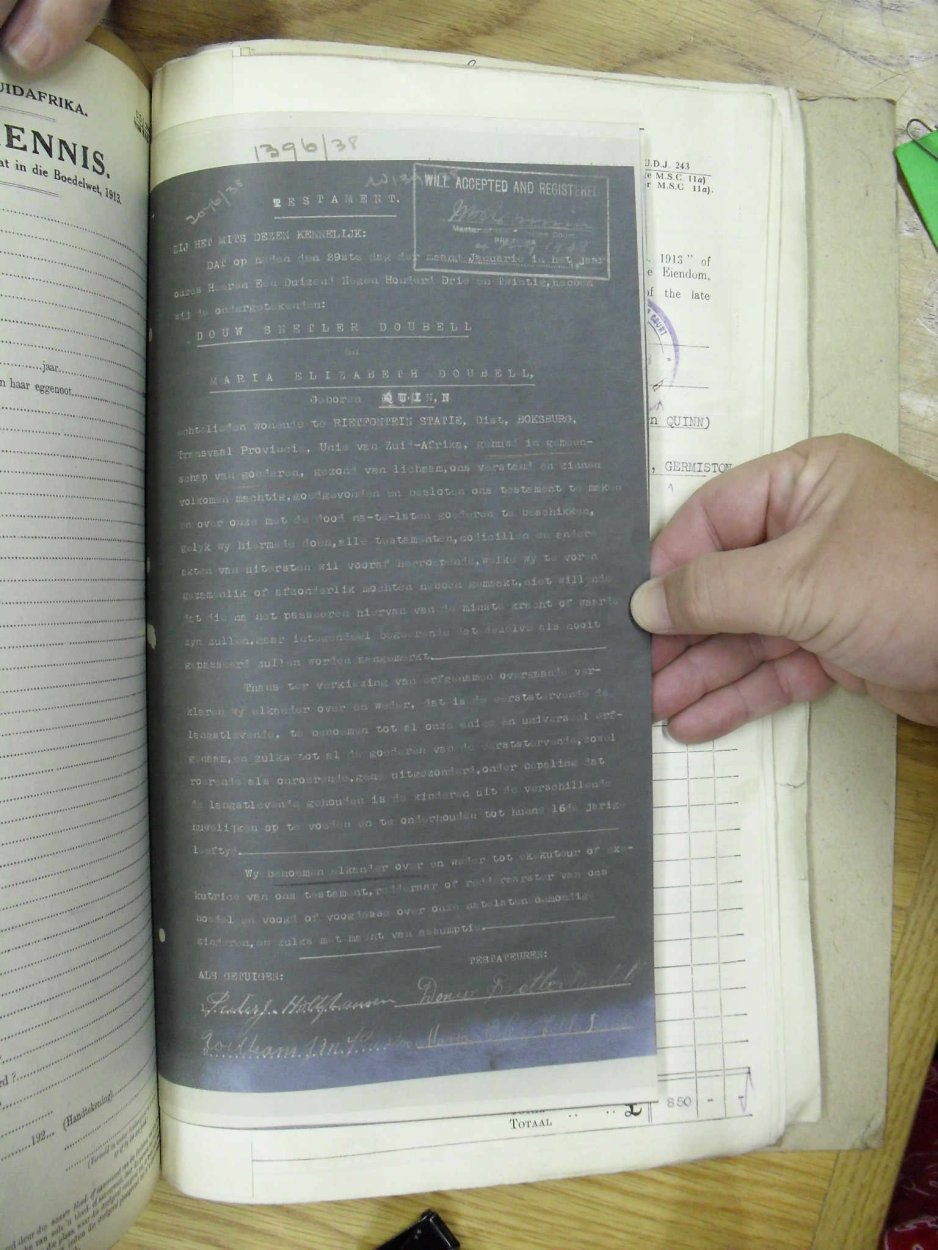 UIDAFRIKA.
ENNIS.
at in die Boedelwet, 1913.
jaar
n haar eggenoot
rd ?
192
(Handtekening)
1396/38
2096/38
WILL ACCEPTED AND REGISTERED
TESTAMENT.
ZIJ HET MITS DEZEN KENNELIJK:
Dat op heden den 29ste dag der maand Januarie in het jaar
onzes Heeren Een Duizend Negen Honderd Drie en Twintig, hebben
wij de ondergetekenden:
DOUW SNETLER DOUBELL
en
MARIA ELIZABETH DOUBELL,
Geboren QUINN
echtelieden wonende te RIETFONTEIN STATIE, Dist. BOKSBURG,
Transvaal Provincie, Unie van Zuid-Afrika, gehuwd in gemeen-
schap van goederen, gezond van lichaam, ons verstand en zinnen
volkomen machtig, goedgevonden en besloten ons testament te maken
en over onze met de dood na-te-laten goederen te beschikken,
gelyk wy hiermede doen, alle testamenten, codicillen en andere
akten van uitersten wil vooraf herroepende, welke wy te voren
gezamenlik of afzonderlik mochten hebben gemaakt, niet willende
dat die na het passeeren hiervan van de minste kracht of waarde
zyn zullen, maar integendeel begeerende dat dezelve als nooit
gepasseerd zullen worden aangemerkt.
Thans ter verkiezing van erfgenamen overgaande ver-
klaren wy elkander over en weder, dat is de eerststervende de
langstlevende, te benoemen tot al onze enige en universeel erf-
genaam, en zulks tot al de goederen van de eerststervende, zowel
roerende als onroerende, gene uitgezonderd, onder bepaling dat
de langstlevende gehouden is de kinderen uit de verschillende
huwelijken op te voeden en te onderhouden tot hunne 16de jarige
leeftyd.
Wy benoemen elkander over en weder tot eksekuteur of ekse-
kutrice van ons testament, redderaar of redderaarster van ons
boedel en voogd of voogdesse over onze natelaten onmondige
kinderen, en zulks met macht van assumptie.
TESTATEUREN:
ALS GETUIGEN:
U.D.J. 243
e M.S.C 11a)
r M.S.C 11a).
1913" of
e Eiendom,
of the late
n QUINN)
, GERMISTON
TOTAAL .. .. £ 850 - -